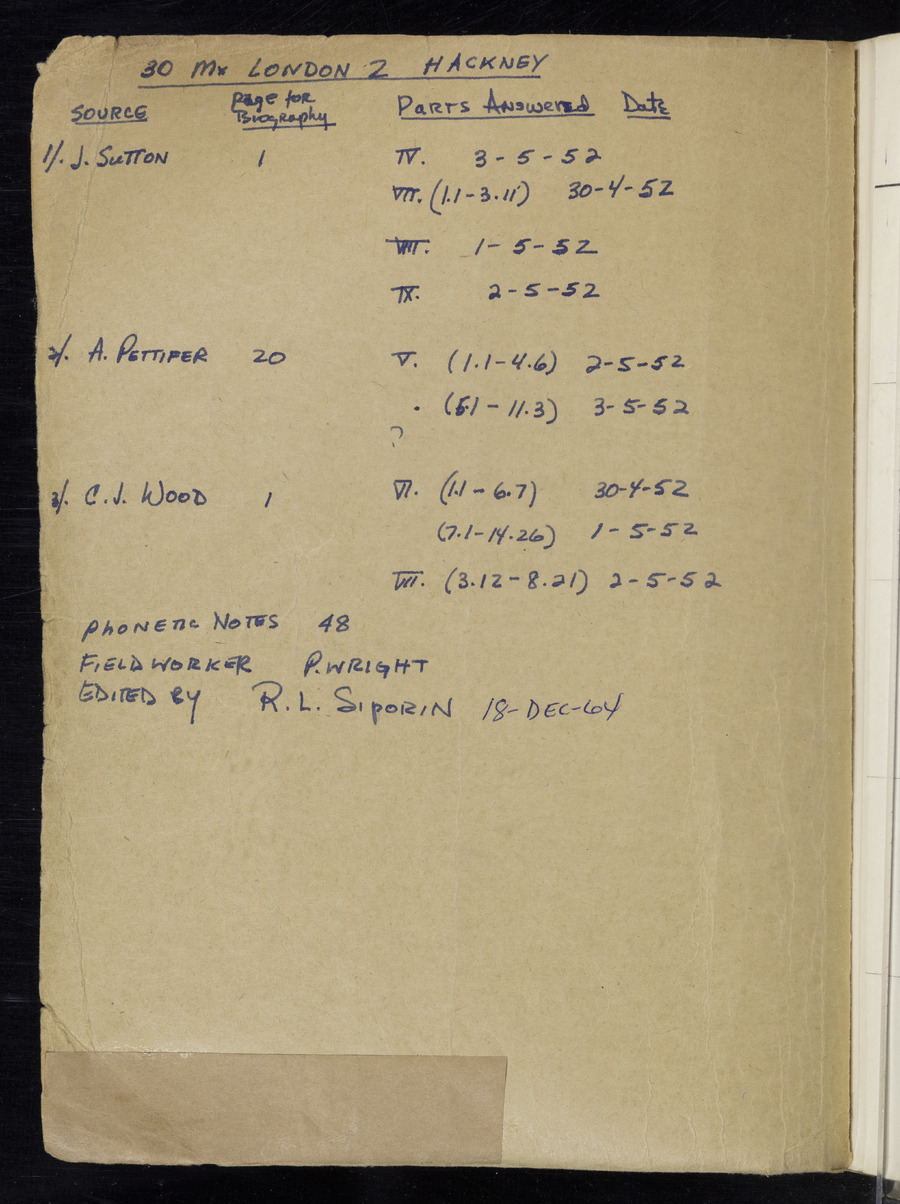 30 Mx LONDON 2 HACKNEY
SOURCE Page for Biography Parts Answered Date
1/. J. SUTTON 1 IV. 3-5-52
VII. (1.1-3.11) 30-4-52
VIII. 1-5-52
IX. 2-5-52
2/. A. PETTIFER 20 V. (1.1-4.6) 2-5-52
. (5.1-11.3) 3-5-52
?
3/. C.J. WOOD 1 VI. (1.1-6.7) 30-4-52
(7.1-14.26) 1-5-52
VII. (3.12-8.21) 2-5-52
PHONETIC NOTES 48
FIELDWORKER P. WRIGHT
EDITED BY R.L. SIPORIN 18-DEC-64